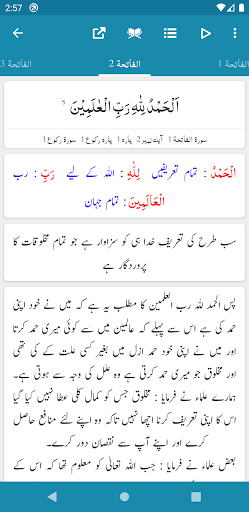 2:57
الفاتحة 1
الفاتحة 2
الفاتحة 3
اَلْحَمْدُ لِلّٰهِ رَبِّ الْعٰلَمِیْنَۙ
سورۃ الفاتحة 1 آیت نمبر 2 پارہ 1 پارہ رکوع 1 سورۃ رکوع 1
الْحَمْدُ : تمام تعریفیں لِلّٰهِ : اللہ کے لیے رَبِّ : رب
الْعَالَمِينَ : تمام جہان
سب طرح کی تعریف خدا ہی کو سزاوار ہے جو تمام مخلوقات کا
پروردگار ہے
پس الحمد للہ رب العلمین کا مطلب یہ ہے کہ میں نے خود اپنی
حمد کی ہے اس سے پہلے کہ عالمین میں سے کوئی میری حمد کرتا
اور میں نے اپنی خود حمد ازل میں بغیر کسی علت کے کی تھی
اور مخلوق جو میری حمد کرتی ہے وہ علل کی وجہ سے ہوتی ہے۔
ہمارے علماء نے فرمایا : مخلوق جس کو کمال کلی عطا نہیں کیا گیا
اس کا اپنی تعریف کرنا اچھا نہیں تاکہ وہ اپنے لئے منافع حاصل
کرے اور اپنے آپ سے نقصان دور کرے۔
بعض علماء نے فرمایا : جب اللہ تعالی کو معلوم تھا کہ اس کے